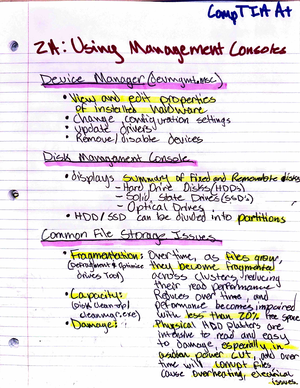 CompTIA A+
2A: Using Management Consoles
Device Manager (devmgmt.msc)
• View and edit properties
of installed hardware
• Change configuration settings
• Update drivers
• Remove/disable devices
Disk Management Console
• displays summary of Fixed and Removable disks
- Hard Drive Disks (HDDs)
- Solid State Drives (SSD's)
- Optical Drives
• HDD/SSD can be divided into partitions
Common File Storage Issues
• Fragmentation: Over time, as files grow,
(Defragment & Optimize they become fragmented
drives Tool) across clusters, reducing
their read performance
• Capacity: Reduces over time, and
(Disk Cleanup/ performance becomes impaired
cleanmgr.exe) with less than 20% free space
• Damage: Physical HDD platters are
intensive to read and easy
to damage, especially in
sudden power cut, and over
time will corrupt files,
cause overheating, electrical
issues